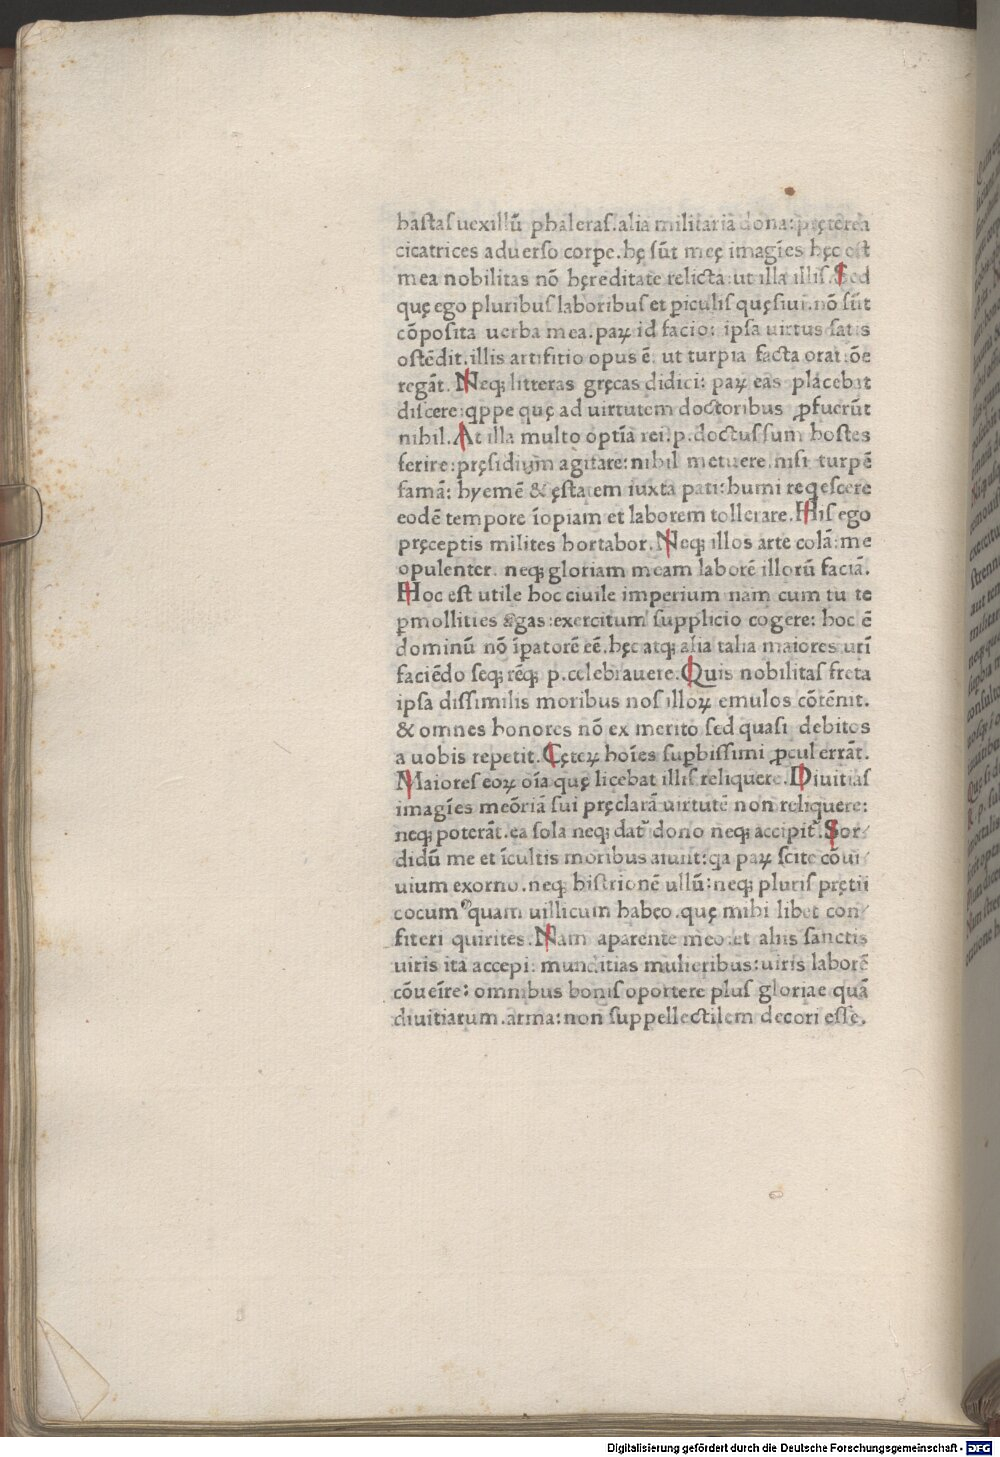 hastas uexillū phaleras.alia militaria dona:pręterea
cicatrices aduerso corꝑe.hę sūt męę imagīes hęc est
mea nobilitas nō hęreditate relicta:ut illa illis.Sed
quę ego pluribus laboribus et ꝑiculis quęsiui.nō sūt
cōposita uerba mea.paꝝ id facio: ipsa uirtus satis
ostēdit.illis artifitio opus ē. ut turpia facta oratiōe
regāt. Neqꝫ litteras gręcas didici: paꝝ eas placebat
discere:qppe quę ad uirtutem doctoribus ꝓfuerūt
nihil.At illa multo optīa rei.p.doctus sum hostes
ferire:pręsidium agitare:nihil metuere.nisi turpē
famā: hyemē & ęstatem iuxta pati:humi reqescere
eodē tempore īopiam et laborem tollerare.His ego
pręceptis milites hortabor.Neqꝫ illos arte colā:me
opulenter. neqꝫ gloriam meam laborē illorū faciā.
Hoc est utile hoc ciuile imperium nam cum tu te
ꝑmollities agas:exercitum supplicio cogere: hoc ē
dominū nō īpatorē eē.hęc atqꝫ alia talia maiores urī
faciēdo seqꝫ rēqꝫ p.celebrauere.Quis nobilitas freta
ipsa dissimilis moribus nos illoꝝ emulos cōtēnit.
& omnes honores nō ex merito sed quasi debitos
a uobis repetit.Cęteꝝ hoīes suꝑbissimi ꝓcul errāt.
Maiores eoꝝ oīa quę licebat illis reliquere.Diuitias
imagīes meōriā sui pręclarā uirtutē non reliquere:
neqꝫ poterāt.ea sola neqꝫ dat᷑ dono neqꝫ accipit᷑.Sor-
didū me et īcultis moribus aiunt:qa paꝝ scite cōui-
uium exorno.neqꝫ histrionē ullū:neqꝫ pluris pretii
cocum quam uillicum habeo.quę mihi libet con-
fiteri quirites.Nam aparente meo:et aliis sanctis
uiris ita accepi: munditias mulieribus:uiris laborē
cōueīre: omnibus bonis oportere plus gloriae quā
diuitiarum.arma:non suppellectilem decori esse.
Digitalisierung gefördert durch die Deutsche Forschungsgemeinschaft - DFG